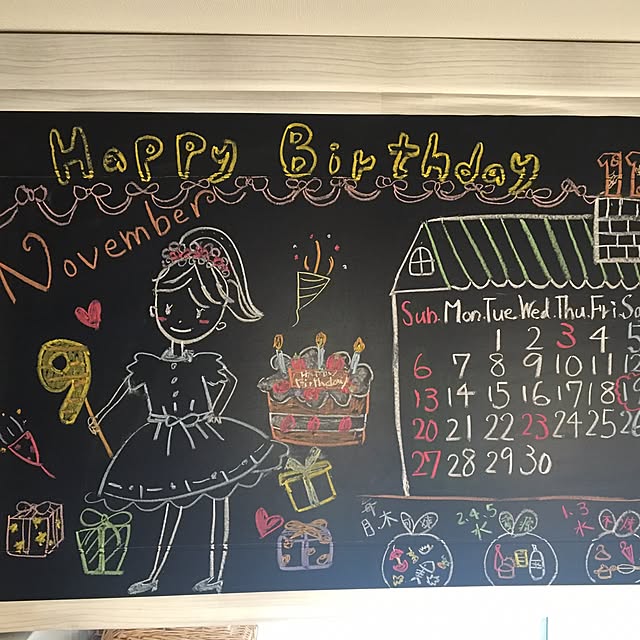 Happy Birthday
11
November
9
Happy Birthday
Sun. Mon. Tue. Wed. Thu. Fri. Sa
1 2 3 4 5
6 7 8 9 10 11 12
13 14 15 16 17 18
20 21 22 23 24 25 26
27 28 29 30
毎 月 木
2.4.5 水
1.3 水